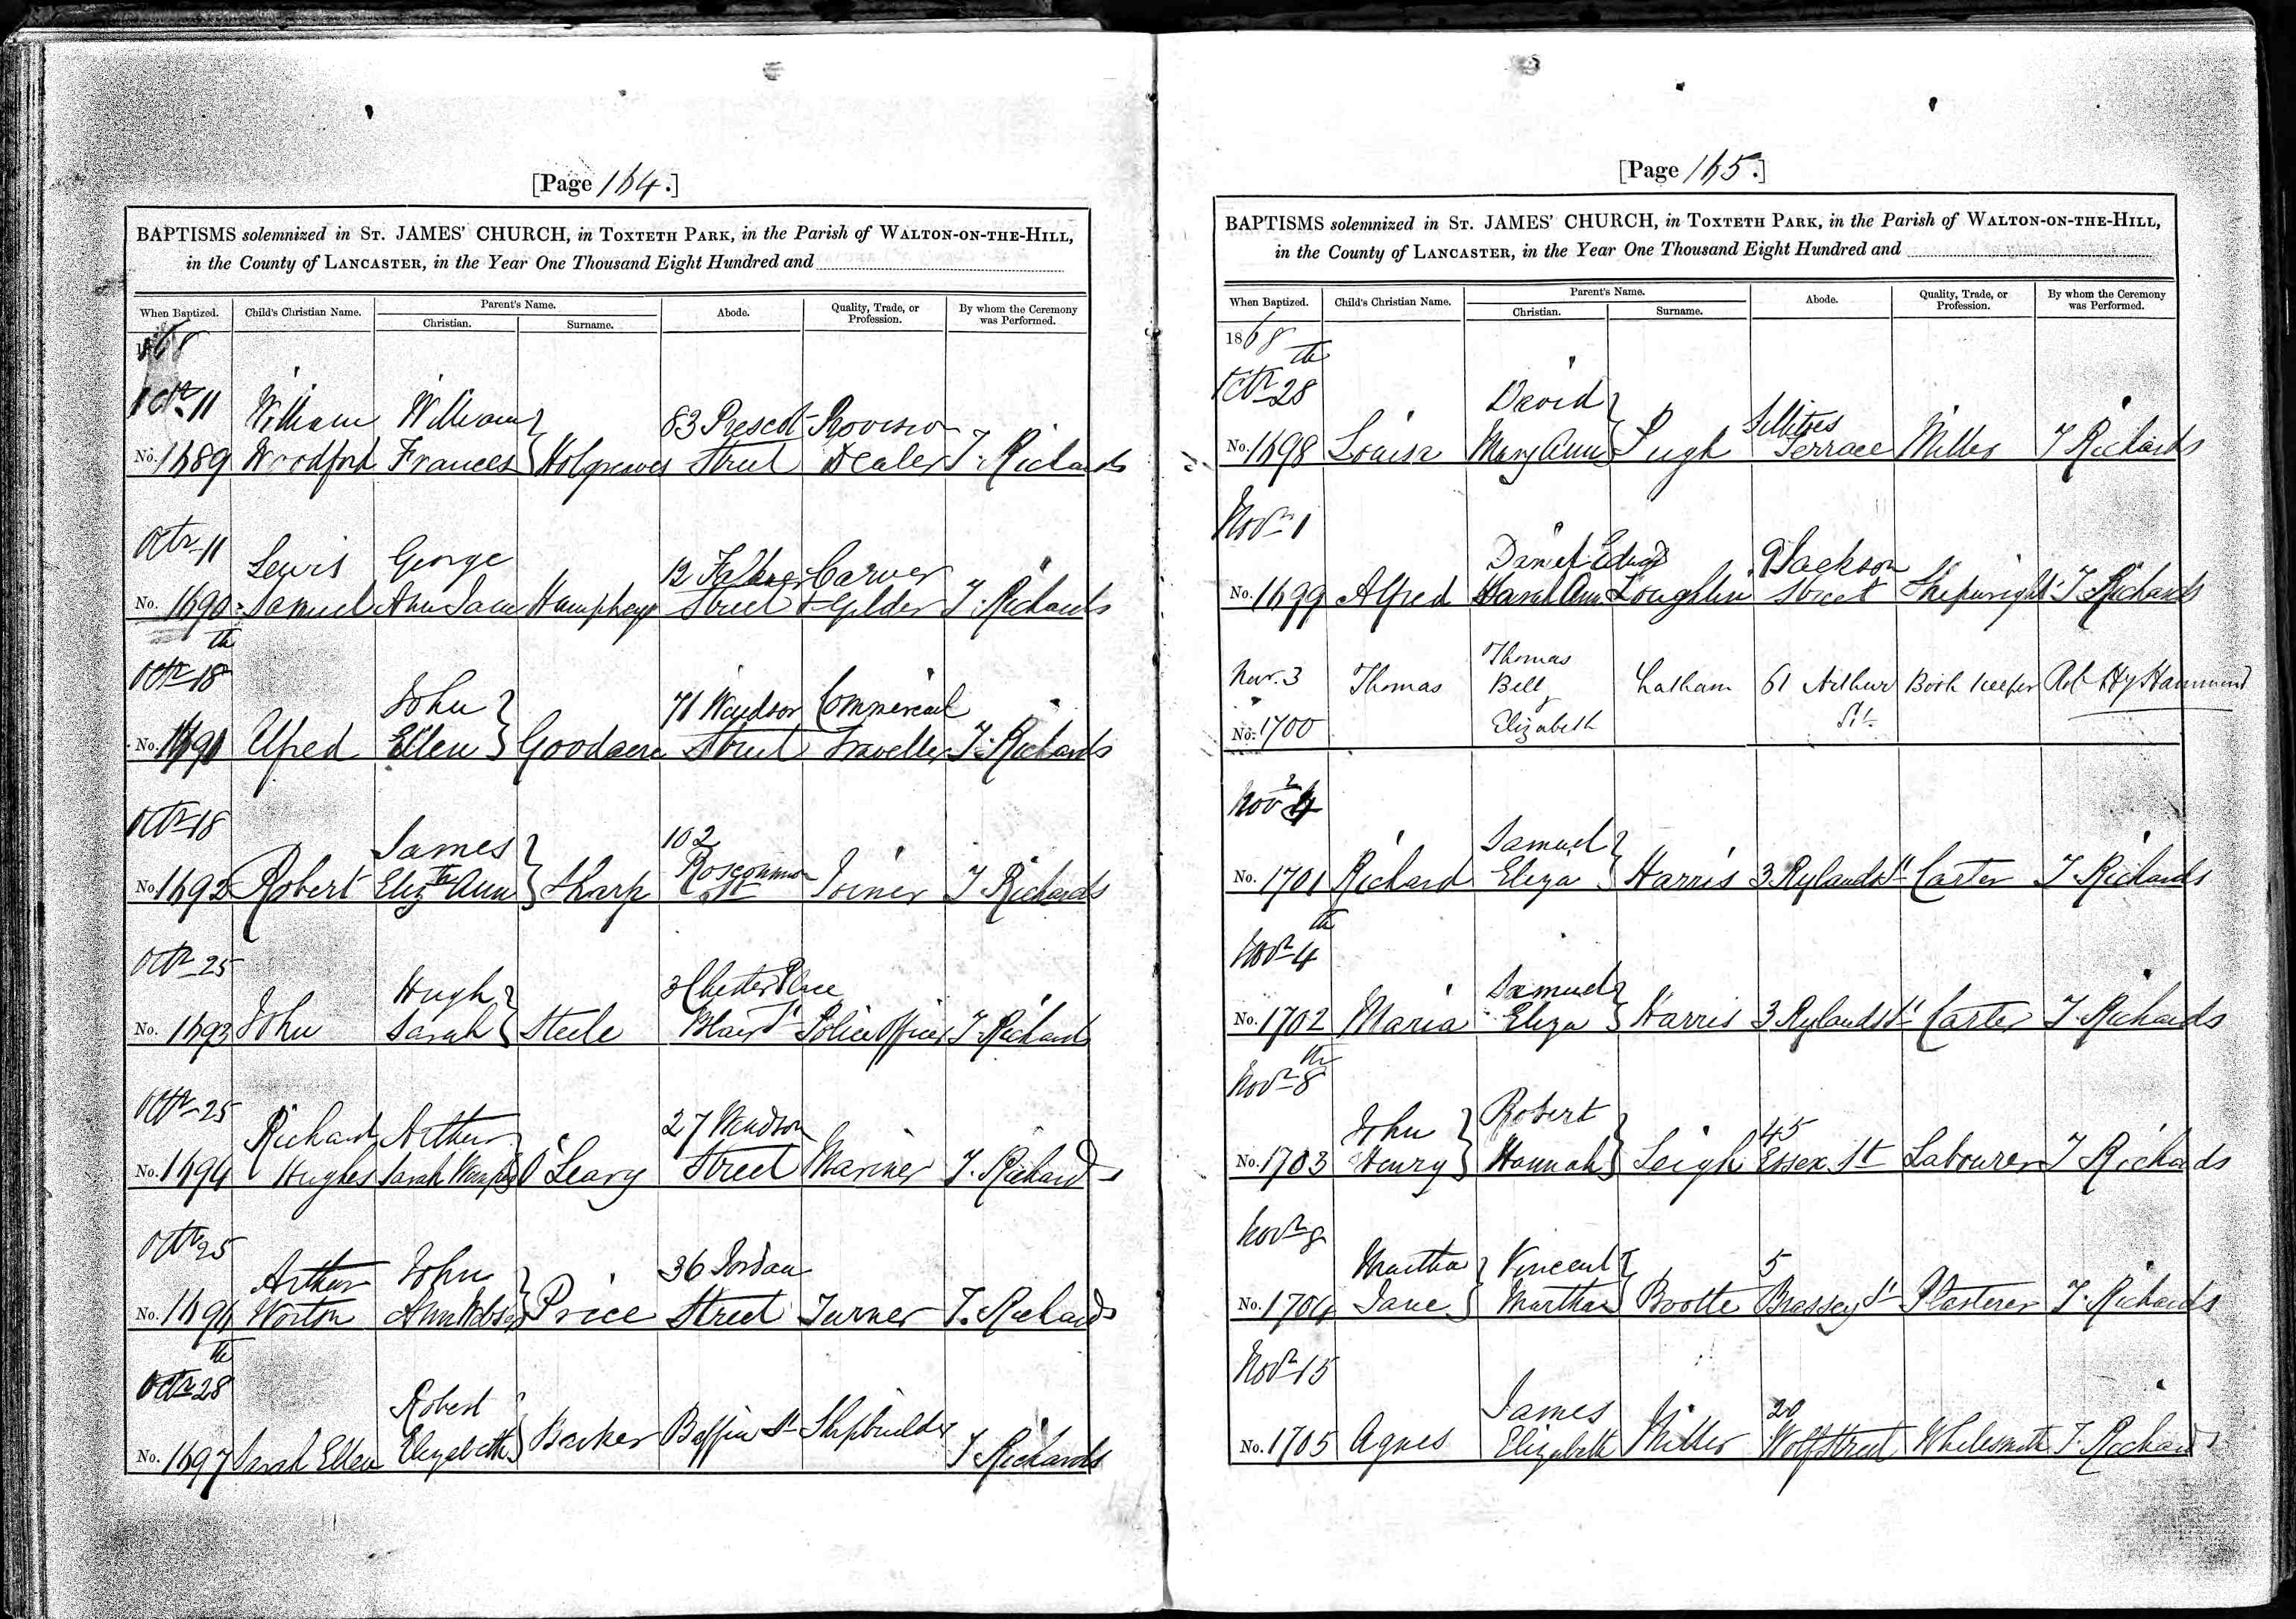 [Page 164.]
BAPTISMS solemnized in ST. JAMES' CHURCH, in TOXTETH PARK, in the Parish of WALTON-ON-THE-HILL,
in the County of LANCASTER, in the Year One Thousand Eight Hundred and
When Baptized. Child's Christian Name. Parent's Name. Abode. Quality, Trade, or Profession. By whom the Ceremony was Performed.
Christian. Surname.
1868
Octr 11 William William 83 Prescot Provision
No. 1689 Woodford Frances Holgreaves Street Dealer T. Richards
Octr 11 Lewis George 12 Falkner Carver
No. 1690 Samuel Ann Jane Humphreys Street & Gilder T. Richards
Octr 18th John 71 Windsor Commercial
No. 1691 Alfred Ellen Goodacre Street Traveller T. Richards
Octr 18 James 102
No. 1692 Robert Elizth Ann Sharp Roscommon St Joiner T. Richards
Octr 25 Hugh 3 Chester Place
No. 1693 John Sarah Steele Blair St Police Officer T. Richards
Octr 25 Richard Arthur 27 Windsor
No. 1694 Hughes Sarah O'Leary Street Mariner T. Richards
Octr 25 Arthur John 36 Jordan
No. 169 Worton Ann Price Street Turner T. Richards
Octr 28th Robert
No. 1697 Sarah Ellen Elizabeth Barker Baffin St Shipbuilder T Richards
[Page 165.]
BAPTISMS solemnized in ST. JAMES' CHURCH, in TOXTETH PARK, in the Parish of WALTON-ON-THE-HILL,
in the County of LANCASTER, in the Year One Thousand Eight Hundred and
When Baptized. Child's Christian Name. Parent's Name. Abode. Quality, Trade, or Profession. By whom the Ceremony was Performed.
Christian. Surname.
1868
Octr 28th David
No. 1698 Louisa Mary Ann Pugh Terrace Miller T Richards
Novr 1 Daniel Edwd 9 Jackson
No. 1699 Alfred Sarah Ann Loughlin Street Shipwright T Richards
Nov. 3 Thomas Thomas Bell & Latham 61 Arthur Book keeper Rob Hy Hammond
No. 1700 Elizabeth St.
Novr 4 Samuel
No. 1701 Richard Eliza Harris 3 Rylands St Carter T. Richards
Novr 4th Samuel
No. 1702 Maria Eliza Harris 3 Rylands St Carter T. Richards
Novr 8th John Robert 45
No. 1703 Henry Hannah Leigh Essex St Labourer T Richards
Novr 8 Martha Vincent 5
No. 1704 Jane Martha Bootte Brassey St Plasterer T. Richards
Novr 15 James 20
No. 1705 Agnes Elizabeth Miller Wolf Street Whitesmith T. Richards